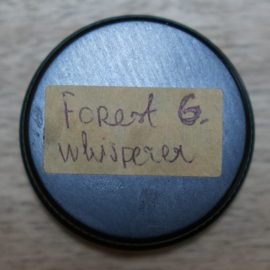 Forest G.
whisperer